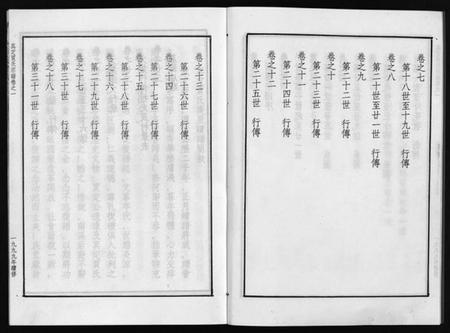 卷之七
第十八世至十九世 行傳
卷之八
第二十世至廿一世 行傳
卷之九
第二十二世 行傳
卷之十
第二十三世 行傳
卷之十一
第二十四世 行傳
卷之十二
第二十五世 行傳
卷之十三
第二十六世 行傳
卷之十四
第二十七世 行傳
卷之十五
第二十八世 行傳
卷之十六
第二十九世 行傳
卷之十七
第三十世 行傳
卷之十八
第三十一世 行傳
一九九九年續修